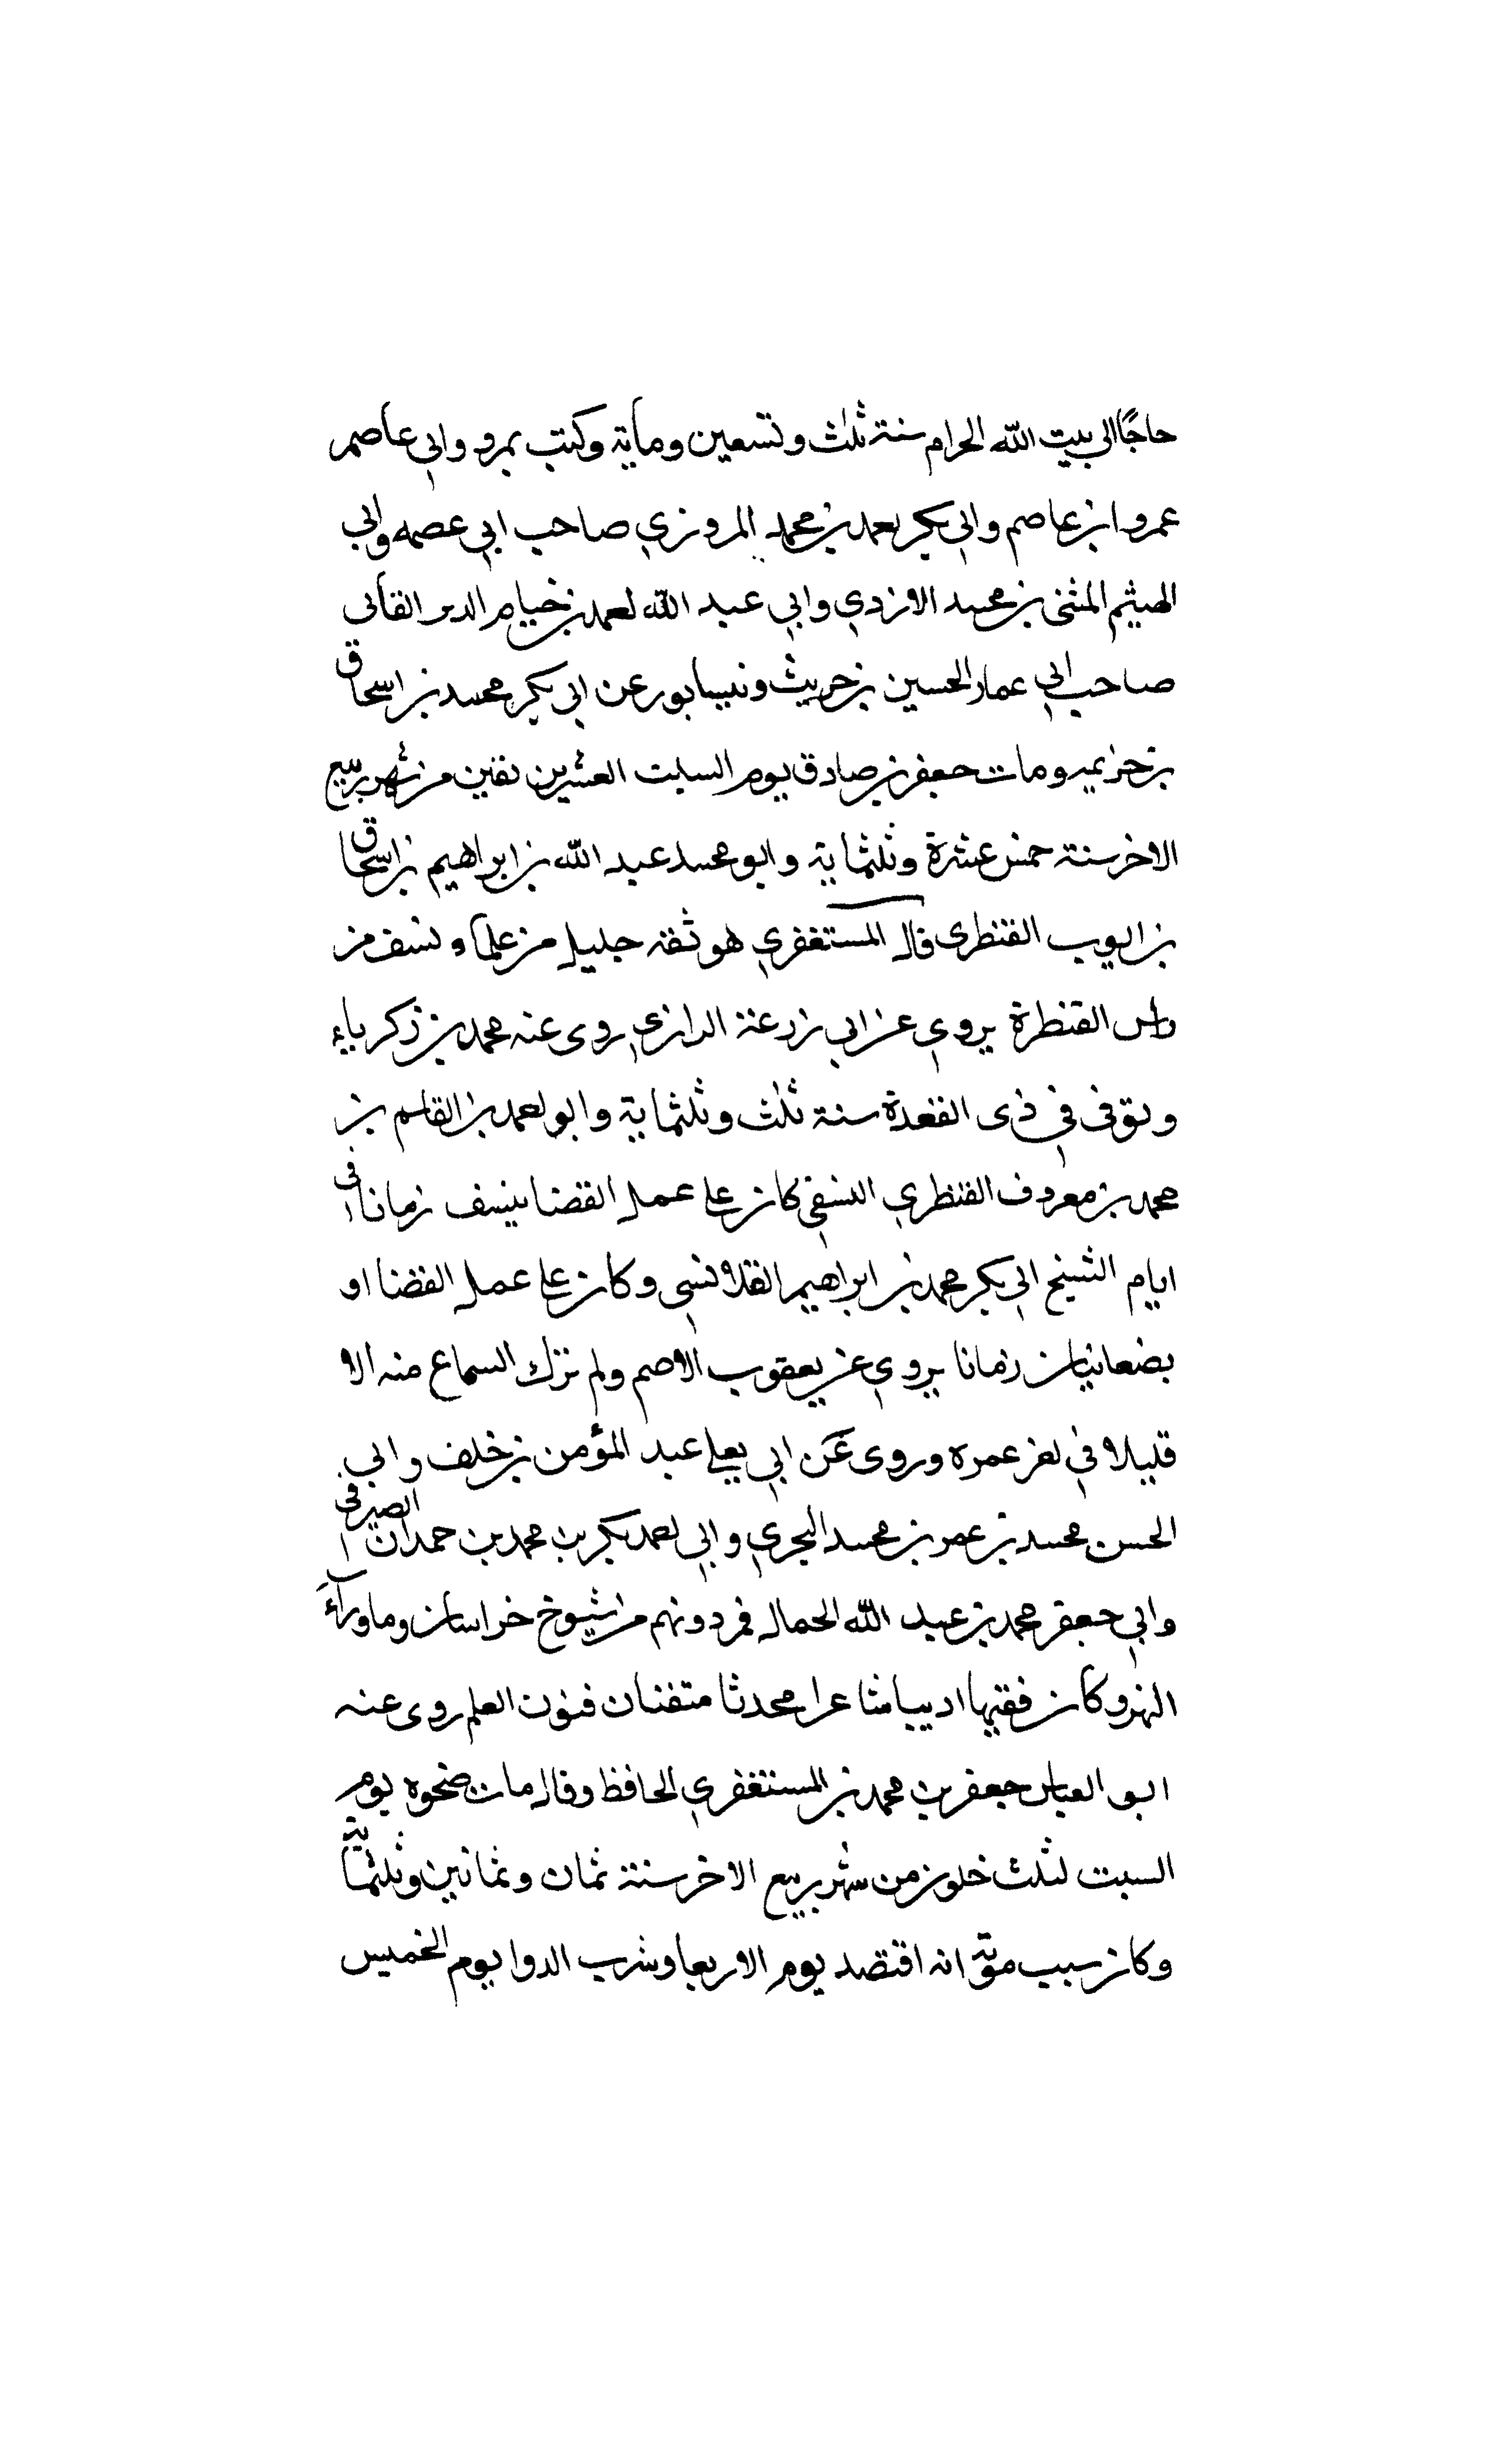 حاجًا الى بيت الله الحرام سنة ثلث وتسعين وماية وكتب بمرو وابي عاصم
عمرو ابن عاصم وابي بكر احمد بن محمد المروزي صاحب ابي عصمه وابي
الهيثم المثنى بن محمد الازدي وابي عبد الله احمد بن
صاحب ابي عمار الحسين بن حريث ونيسابور عن ابي بكر محمد بن اسحاق
بن خزيمه ومات جعفر بن صادق يوم السبت العشرين بقين من شهر ربيع
الاخر سنة خمس عشرة وثلثماية وابو محمد عبد الله بن ابراهيم بن اسحاق
بن ايوب القنطرى قال المستغفري هو ثقه جليل من علماء نسف من
راس القنطرة يروي عن ابي زرعة الرازي روى عنه محمد بن زكرياء
وتوفى في ذى القعدة سنة ثلث وثلثماية وابو احمد بن القاسم بن
محمد بن معروف القنطري النسفي كان على عمل القضا بنسف زمانا في
ايام الشيخ ابي بكر محمد بن ابراهيم القلانسي وكان على عمل القضا او
بصغانيان زمانا يروي عن يعقوب الاصم ولم نزك السماع منه الا
قليلا في اخر عمره وروى عَن ابي يعلى عبد المؤمن بن خلف وابي
الحسن محمد بن عمر بن محمد البجري وابي احمد بكر بن محمد بن حمدان الصيرفي
وابي جعفر محمد بن عبد الله الحمال فمن دونهم من شيوخ خراسان وما ورآءَ
النهر وكان فقيها اديبا شاعرا محدثا متفنان فنون العلم روى عنه
ابو العباس جعفر بن محمد بن المستغفري الحافظ وقال مات ضحوه يوم
السبت لثلث خلون من شهر ربيع الاخر سنة ثمان وثمانين وثلثماية
وكان سبب موته انه اقتصد يوم الاربعا وشرب الدوا يوم الخميس